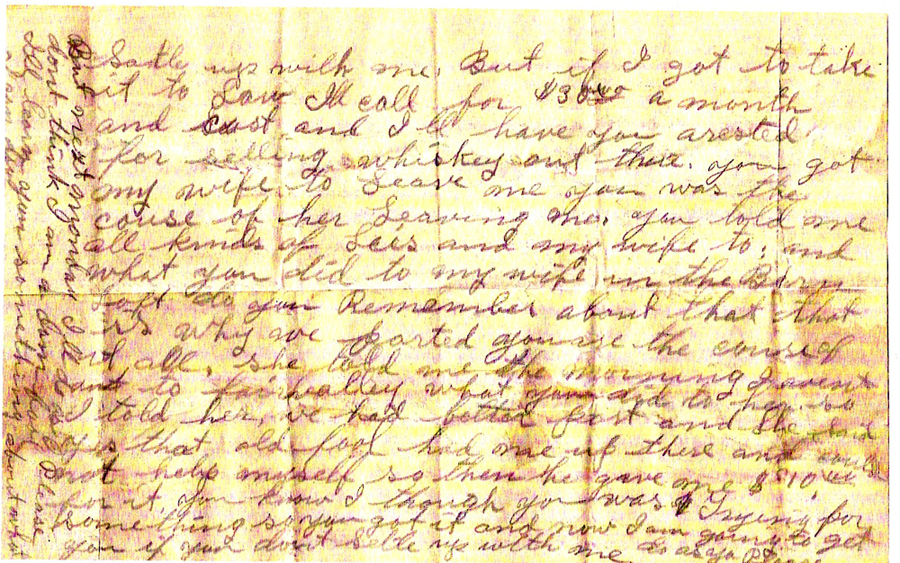 Satle up with me. But if I got to take
it to Law Ill call for $30.00 a month
and Cost and I ll have you arested
for selling whiskey out thar. you got
my wife to Leave me you was the
couse of her Leaving me. you told me
all kinds of Leis and my wife to. and
what you did to my wife in the Barn
Loft do you Remember about that that
is why we parted you are the couse of
it all, she told me the morning I went
to what you did to her so
I told her we had better part and she said
yes that old fool had me up there and could
not help myself so then he gave me $10.00
for it. you know I though you was trying for
something so you got it and now I am going to get
you if you dont Satle up with me do as you Please
But next
dont think I am a dam fool Please
Ill learn you something about